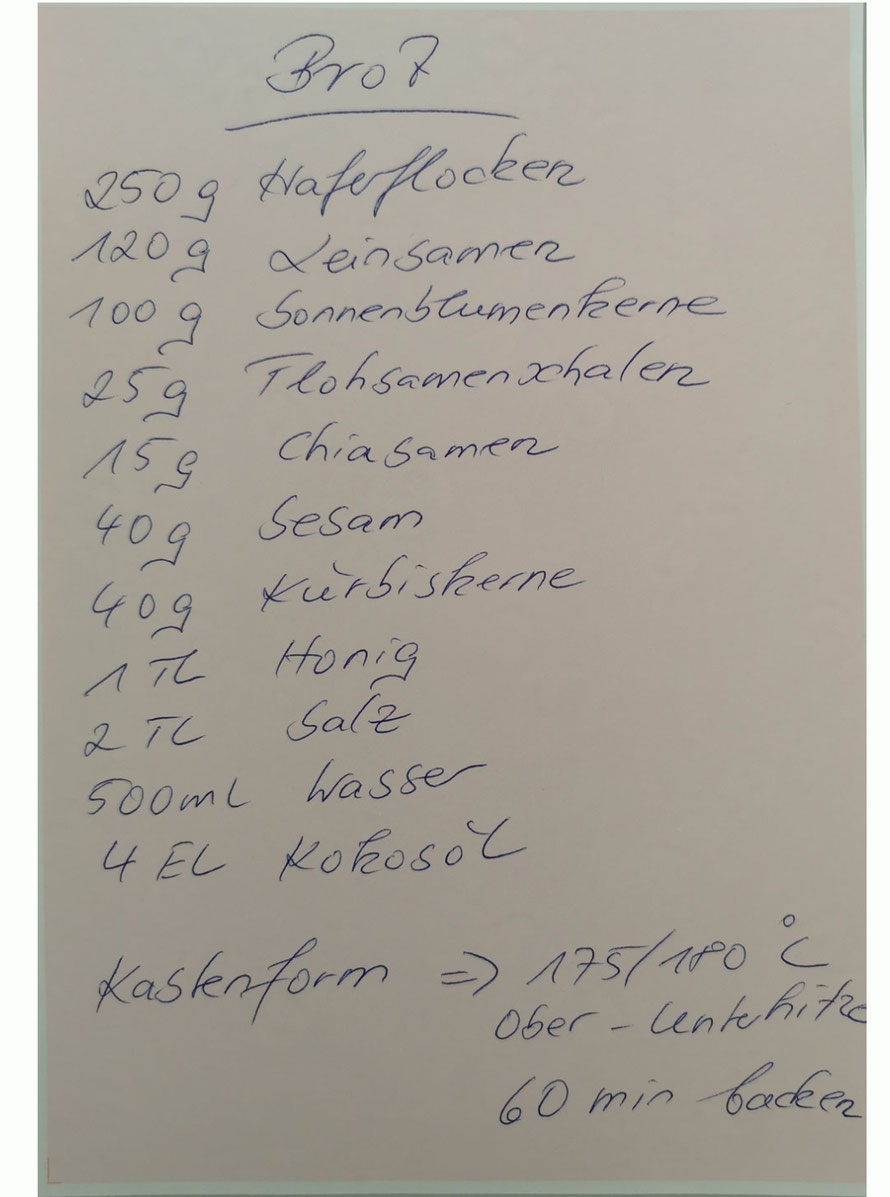 Brot
250 g Haferflocken
120 g Leinsamen
100 g Sonnenblumenkerne
25 g Flohsamenschalen
15 g Chiasamen
40 g Sesam
40 g Kürbiskerne
1 TL Honig
2 TL Salz
500ml Wasser
4 EL Kokosöl
Kastenform => 175/180 °C
Ober - Unterhitze
60 min backen